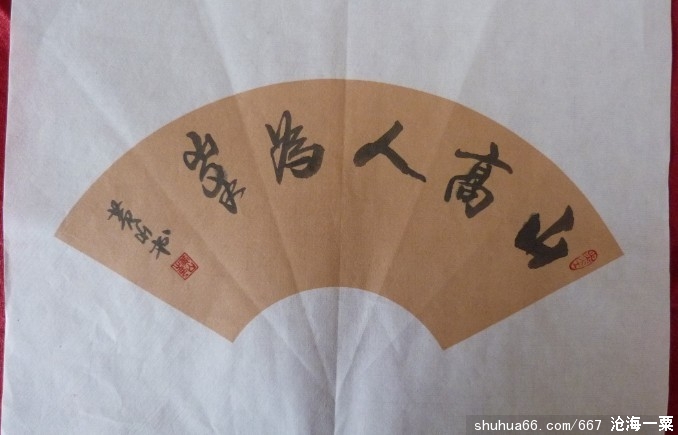 山高人为峰
黄明书
shuhua66.com/667 沧海一粟